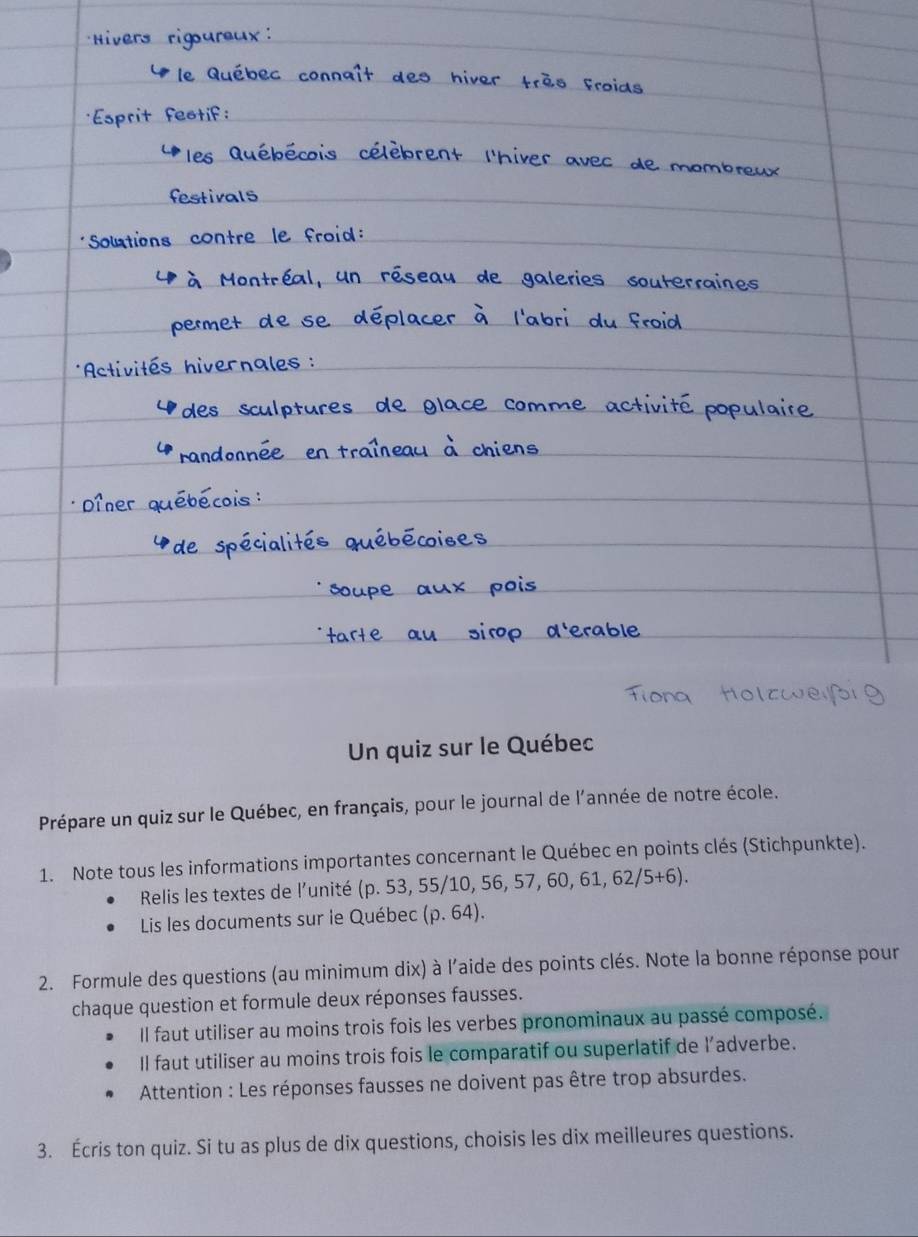 ·Hivers rigoureux:
↳ le Québec connaît des hiver très froids
·Esprit festif:
↳ les Québécois célèbrent l'hiver avec de mombreux
festivals
·Solutions contre le froid:
↳ à Montréal, un réseau de galeries souterraines
permet de se déplacer à l'abri du froid
·Activités hivernales:
↳ des sculptures de glace comme activité populaire
↳ randonnée en traîneau à chiens
·Dîner québécois:
↳ de spécialités québécoises
·soupe aux pois
·tarte au sirop d'erable
Fiona Holzweißig
Un quiz sur le Québec
Prépare un quiz sur le Québec, en français, pour le journal de l'année de notre école.
1. Note tous les informations importantes concernant le Québec en points clés (Stichpunkte).
• Relis les textes de l'unité (p. 53, 55/10, 56, 57, 60, 61, 62/5+6).
• Lis les documents sur le Québec (p. 64).
2. Formule des questions (au minimum dix) à l'aide des points clés. Note la bonne réponse pour
chaque question et formule deux réponses fausses.
• Il faut utiliser au moins trois fois les verbes pronominaux au passé composé.
• Il faut utiliser au moins trois fois le comparatif ou superlatif de l'adverbe.
• Attention : Les réponses fausses ne doivent pas être trop absurdes.
3. Écris ton quiz. Si tu as plus de dix questions, choisis les dix meilleures questions.